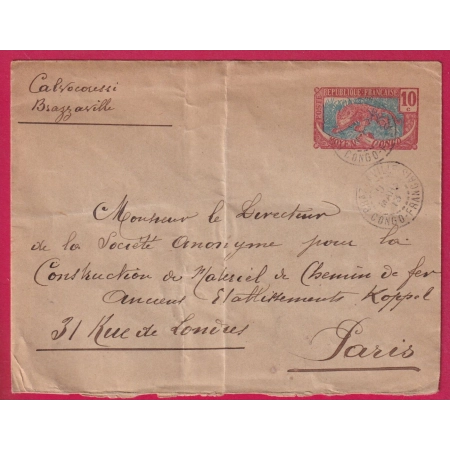 Calvocoressi
Brazzaville
RÉPUBLIQUE FRANÇAISE
POSTES
10
c
MOYEN CONGO
CONGO
CONGO-FRAN
Monsieur le Directeur
de la Société Anonyme pour la
Construction de Materiel de Chemin de fer
Anciens Etablissements Koppel
31 Rue de Londres
Paris